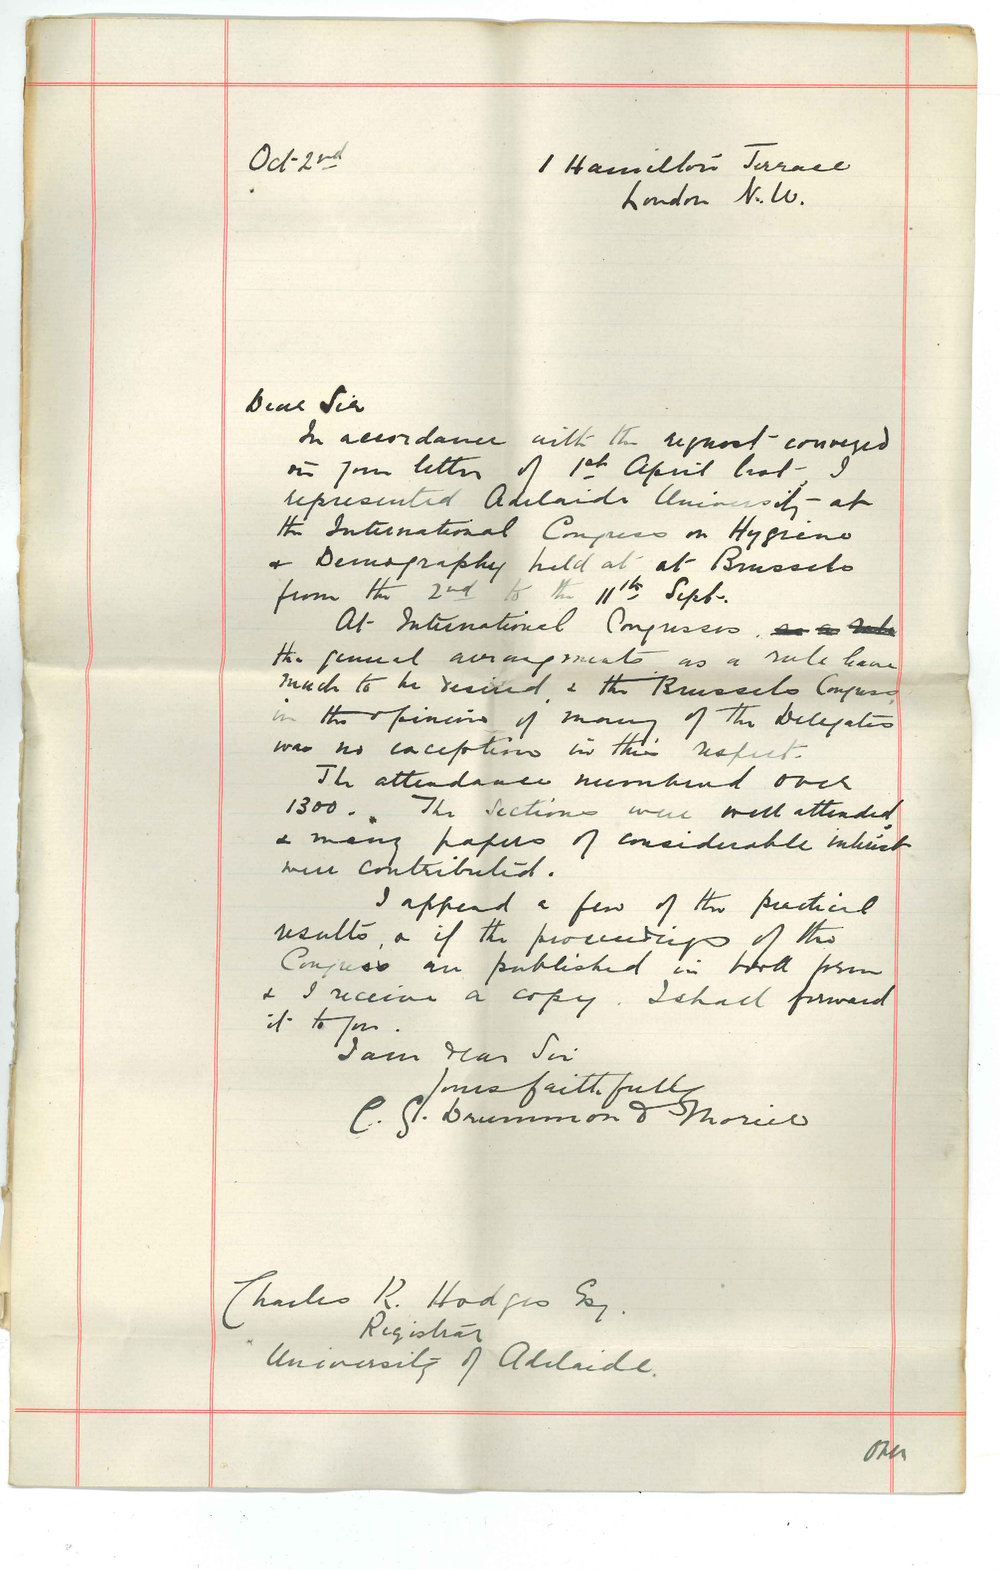 Oct 2nd
1 Hamilton Terrace
London N.W.
Dear Sir
In accordance with the request conveyed
in your letter of 1st April last, I
represented Adelaide University at
the International Congress on Hygiene
& Demography held at at Brussels
from the 2nd to the 11th Sept.
At International Congresses, as a rule
the general arrangements as a rule have
much to be desired, & the Brussels Congress,
in the opinion of many of the Delegates
was no exception in this respect.
The attendance numbered over
1300. The Sections were well attended,
& many papers of considerable interest
were contributed.
I append a few of the practical
results, & if the proceedings of the
Congress are published in book form
& I receive a copy, I shall forward
it to you.
I am dear Sir
Yours faithfully
C. G. Drummond Morier
Charles R. Hodges Esq.
Registrar
University of Adelaide.
Over